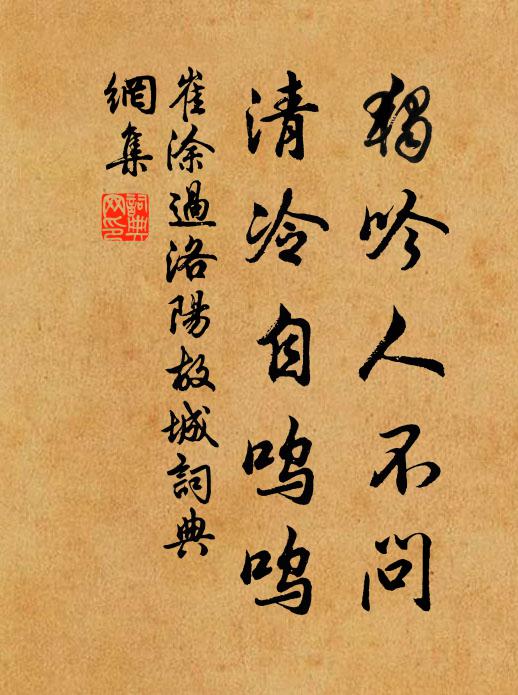 獨吟人不問
清冷自嗚嗚
崔涂過洛陽故城詞典
網集
詞典网印